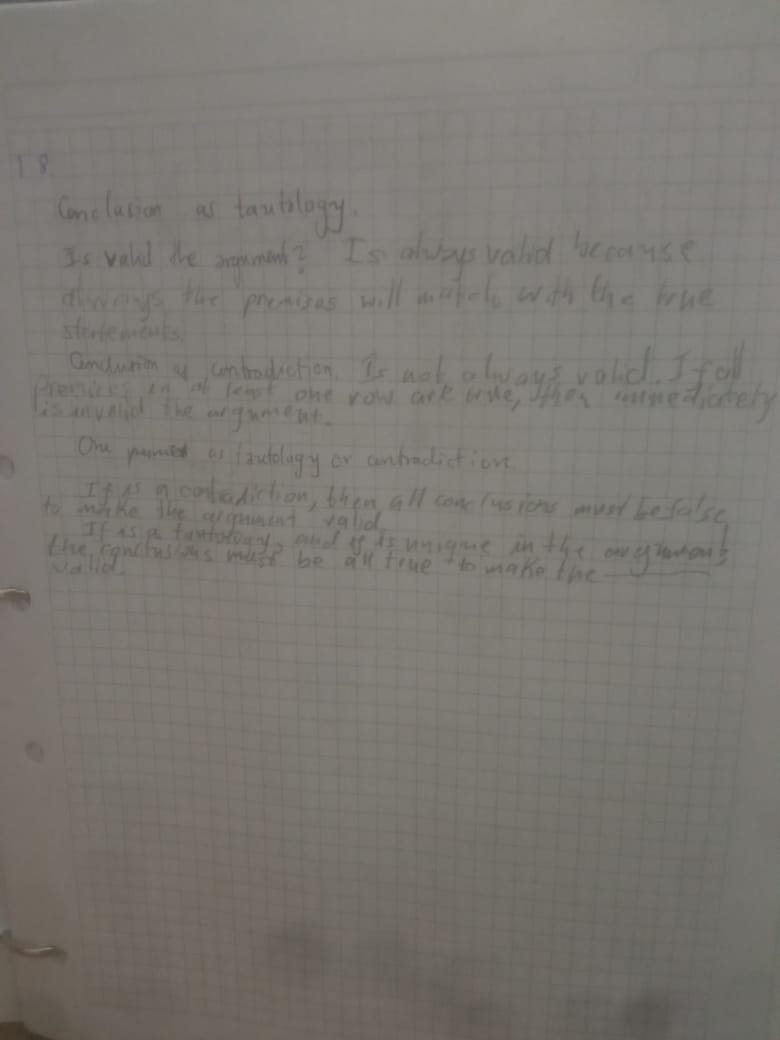 18.
Conclusion as tautology.
Is valid the argument? Is always valid because
always the premises will match with the true
statements.
Conclusion as contradiction. Is not always valid. If all
premises in at least one row are true, then immediately
is invalid the argument.
One as tautology or contradiction.
If is a contradiction, then all conclusions must be false,
to make the argument valid.
If is a tautology, and if is unique in the argument,
the conclusions must be all true to make the
valid.